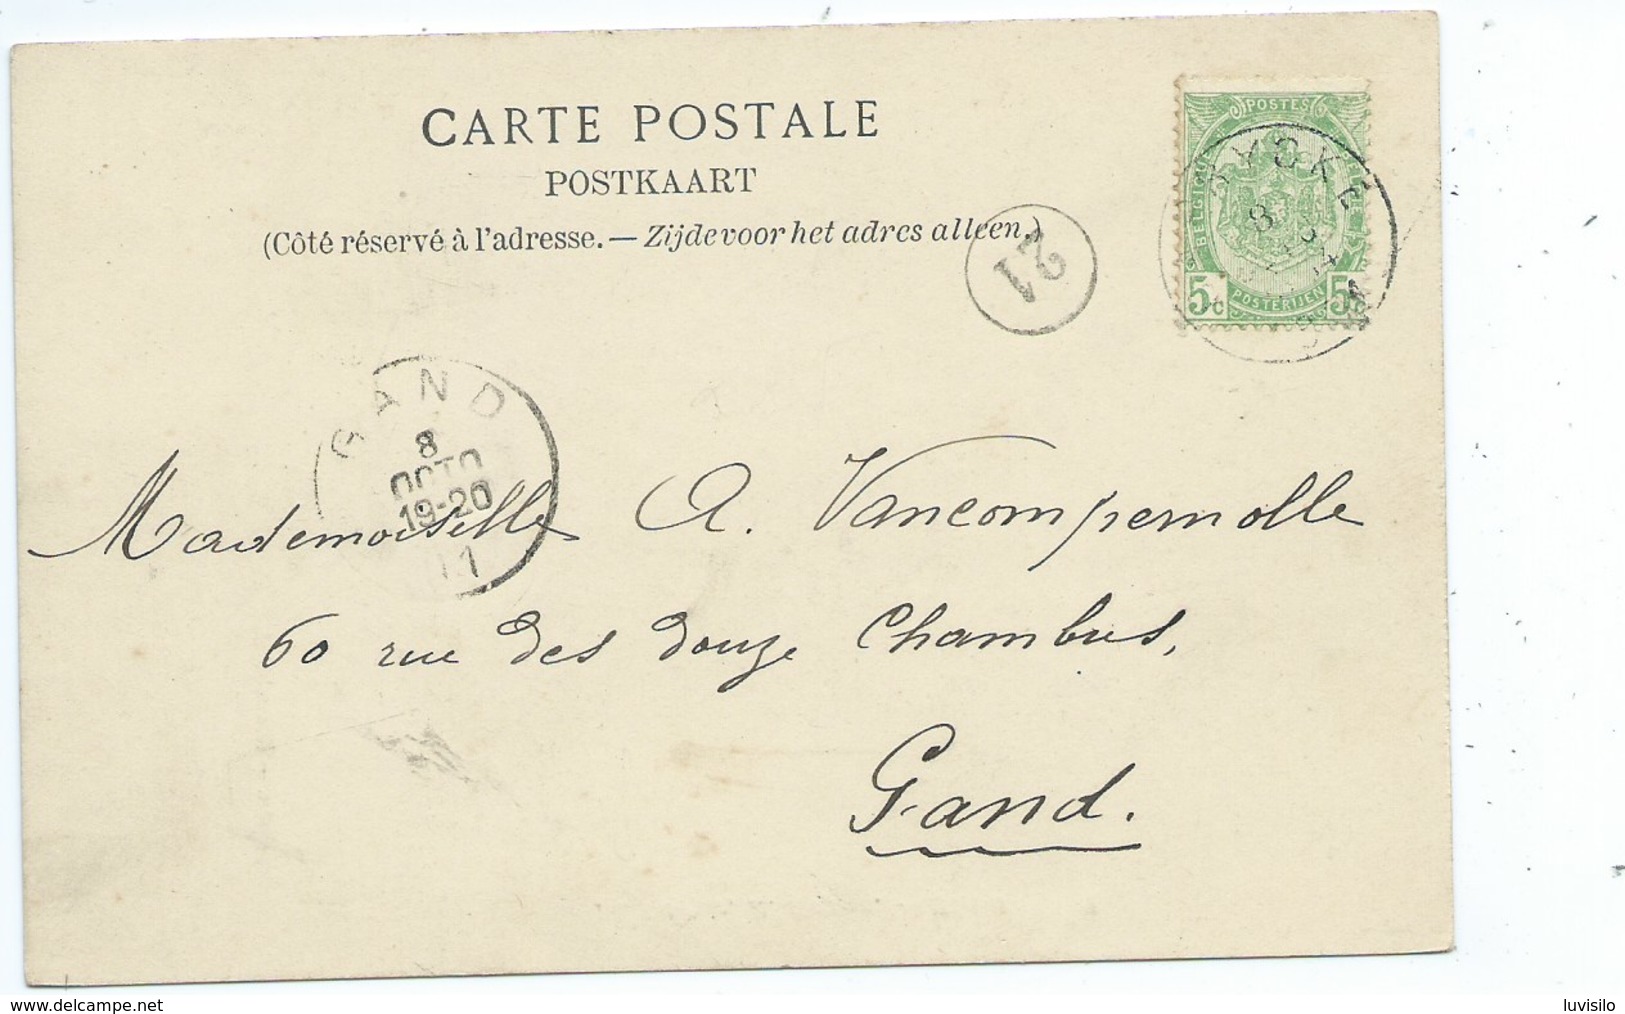 CARTE POSTALE
POSTKAART
(Côté réservé à l'adresse. — Zijde voor het adres alleen.)
POSTES
BELGIQUE
5c POSTERIJEN 5c
21
GAND
8
OCTO
19-20
Mademoiselle A. Vancompernolle
60 rue des douze Chambres,
Gand.
www.delcampe.net
luvisilo